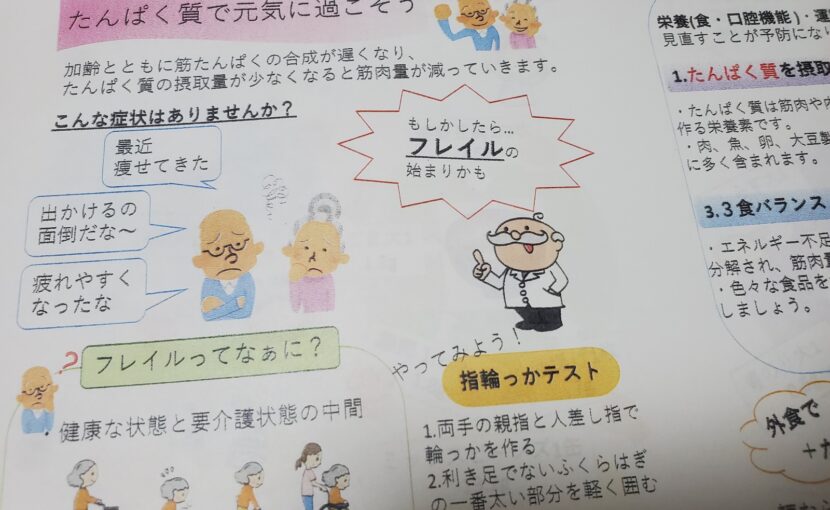 たんぱく質で元気に過ごそう
加齢とともに筋たんぱくの合成が遅くなり、
たんぱく質の摂取量が少なくなると筋肉量が減っていきます。
こんな症状はありませんか？
最近
痩せてきた
出かけるの
面倒だな～
疲れやすく
なったな
もしかしたら…
フレイルの
始まりかも
?
フレイルってなぁに？
・健康な状態と要介護状態の中間
やってみよう！
指輪っかテスト
1.両手の親指と人差し指で
輪っかを作る
2.利き足でないふくらはぎ
の一番太い部分を軽く囲む
栄養(食・口腔機能)・運
見直すことが予防にな
1.たんぱく質を摂取
・たんぱく質は筋肉や内
作る栄養素です。
・肉、魚、卵、大豆製
に多く含まれます。
3.３食バランス
・エネルギー不足
分解され、筋肉量
・色々な食品を
しましょう。
外食で
＋た